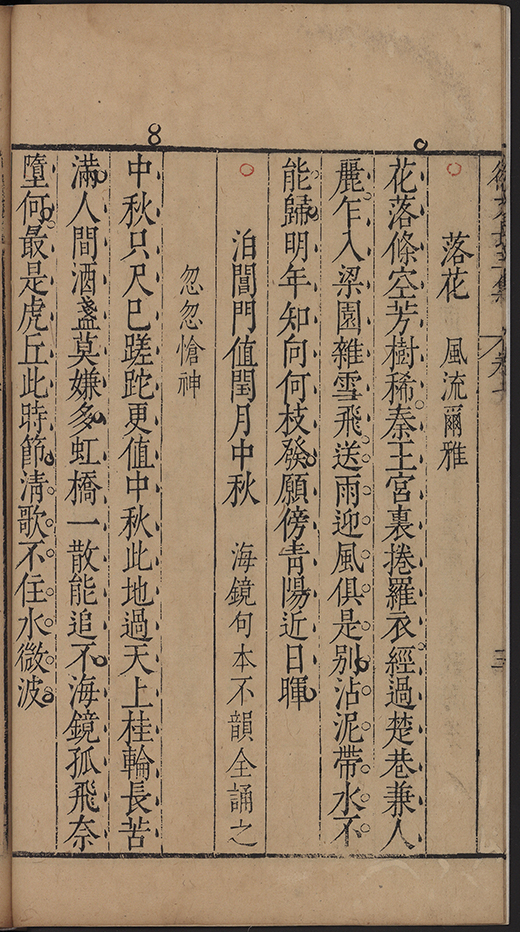 落花 風流爾雅
花落條空芳樹稀秦王宮裏捲羅衣經過楚巷兼人
麗乍入梁園雜雪飛送雨迎風俱是別沾泥帶水不
能歸明年知向何枝發願傍青陽近日暉
泊閶門值閏月中秋 海鏡句本不韻全誦之
忽忽愴神
中秋只尺已蹉跎更值中秋此地過天上桂輪長苦
滿人間酒盞莫嫌多虹橋一散能追不海鏡孤飛奈
墮何最是虎丘此時節清歌不住水微波